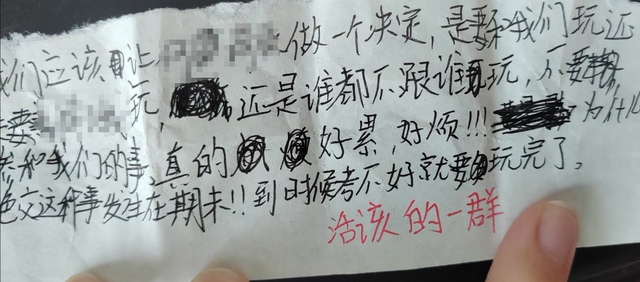 我们应该让做一个决定,是要和我们玩还
要玩,还是谁都不跟谁玩,不要
参和我们的事,真的好累,好烦!!!为什么
绝交这种事发生在期末!!到时候考不好就要玩完了。
活该的一群